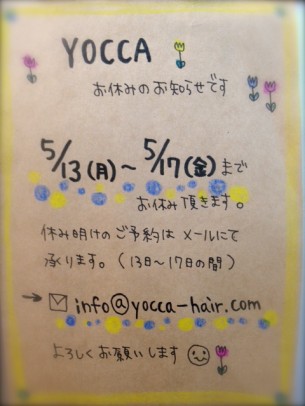 YOCCA
お休みのお知らせです
5/13(月)～5/17(金)まで
お休み頂きます。
休み明けのご予約はメールにて
承ります。(13日～17日の間)
→ info@yocca-hair.com
よろしくお願いします